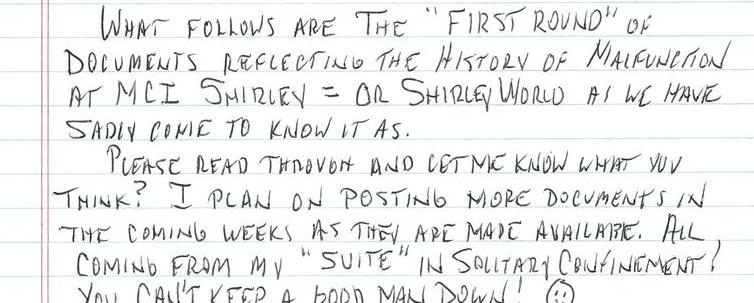 WHAT FOLLOWS ARE THE "FIRST ROUND" OF
DOCUMENTS REFLECTING THE HISTORY OF MALFUNCTION
AT MCI SHIRLEY = OR SHIRLEY WORLD AS WE HAVE
SADLY COME TO KNOW IT AS.
PLEASE READ THROUGH AND LET ME KNOW WHAT YOU
THINK? I PLAN ON POSTING MORE DOCUMENTS IN
THE COMING WEEKS AS THEY ARE MADE AVAILABLE. ALL
COMING FROM MY "SUITE" IN SOLITARY CONFINEMENT!
YOU CAN'T KEEP A GOOD MAN DOWN! ☺